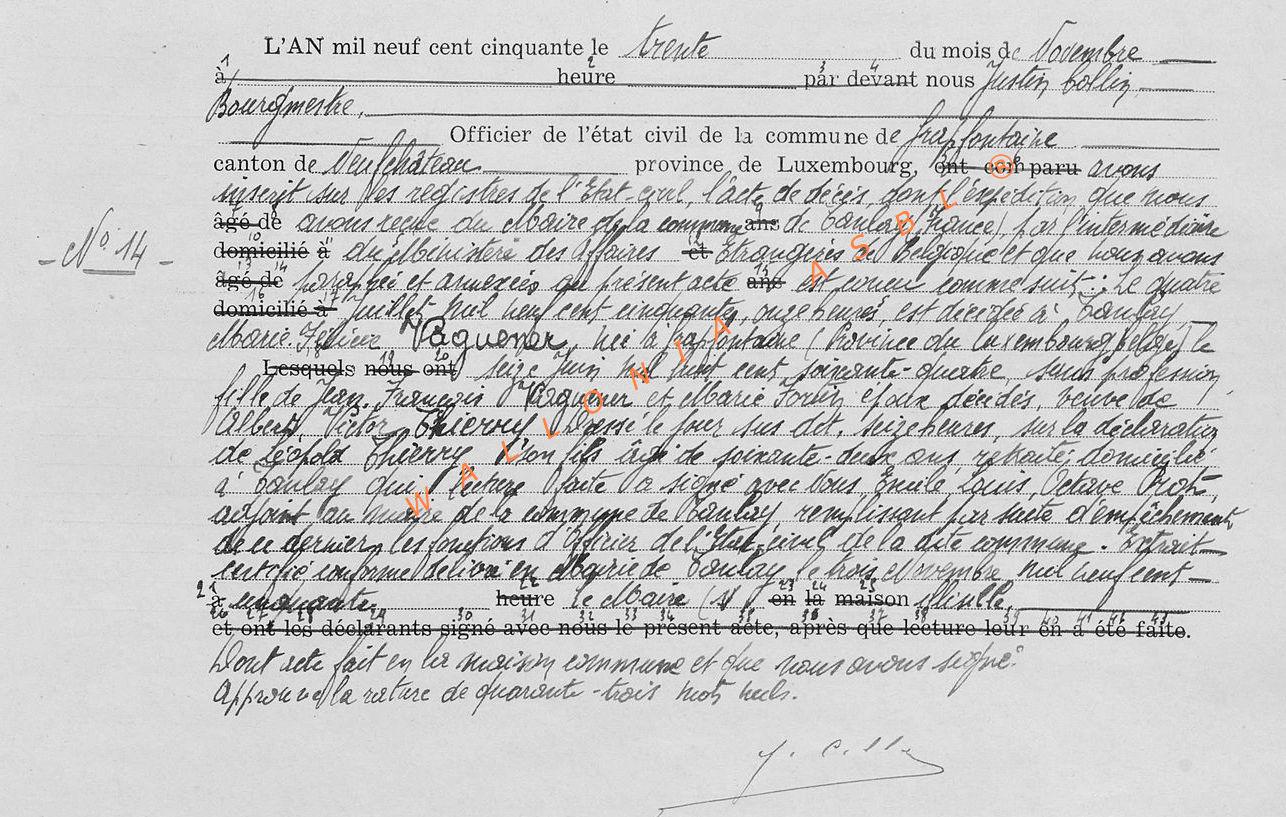 L'AN mil neuf cent cinquante le trente du mois de Novembre
à heure par devant nous Justin Collin
Bourgmestre,
Officier de l'état civil de la commune de Grapfontaine
canton de Neufchâteau province de Luxembourg, ont comparu avons
inscrit sur les registres de l'Etat-civil, l'acte de décès dont l'expédition que nous
âgé de avons reçue du Maire de la commune ans de (France) par l'intermédiaire
N° 14
domicilié à du Ministère des Affaires et Etrangères de Belgique et que nous avons
âgé de paraphée et annexée au présent acte ans est conçu comme suit: Le quatre
domicilié à Juillet mil neuf cent cinquante, onze heures, est décédée à
Marie née à Grapfontaine (Province du Luxembourg belge) le
Lesquels nous ont seize Juin mil huit cent soixante-quatre, sans profession,
fille de Jean François et Marie époux décédés, veuve de
Albert, Victor Thierry Dressé le jour sus dit, seize heures, sur la déclaration
de Léopold Thierry son fils âgé de soixante-deux ans, retraité, domicilié
à qui, lecture faite a signé avec Nous Emile, Louis, Octave
adjoint au maire de la commune de remplissant par suite d'empêchement
de ce dernier, les fonctions d'Officier de l'Etat-civil de la dite commune. Extrait
certifié conforme délivré en Mairie de le trois Novembre mil neuf cent
à cinquante heure le Maire (s) en la maison
et ont les déclarants signé avec nous le présent acte, après que lecture leur en a été faite.
Dont acte fait en la maison commune et que nous avons signé.
Approuvé la rature de quarante-trois mots nuls.
WALLONIA ASBL ®